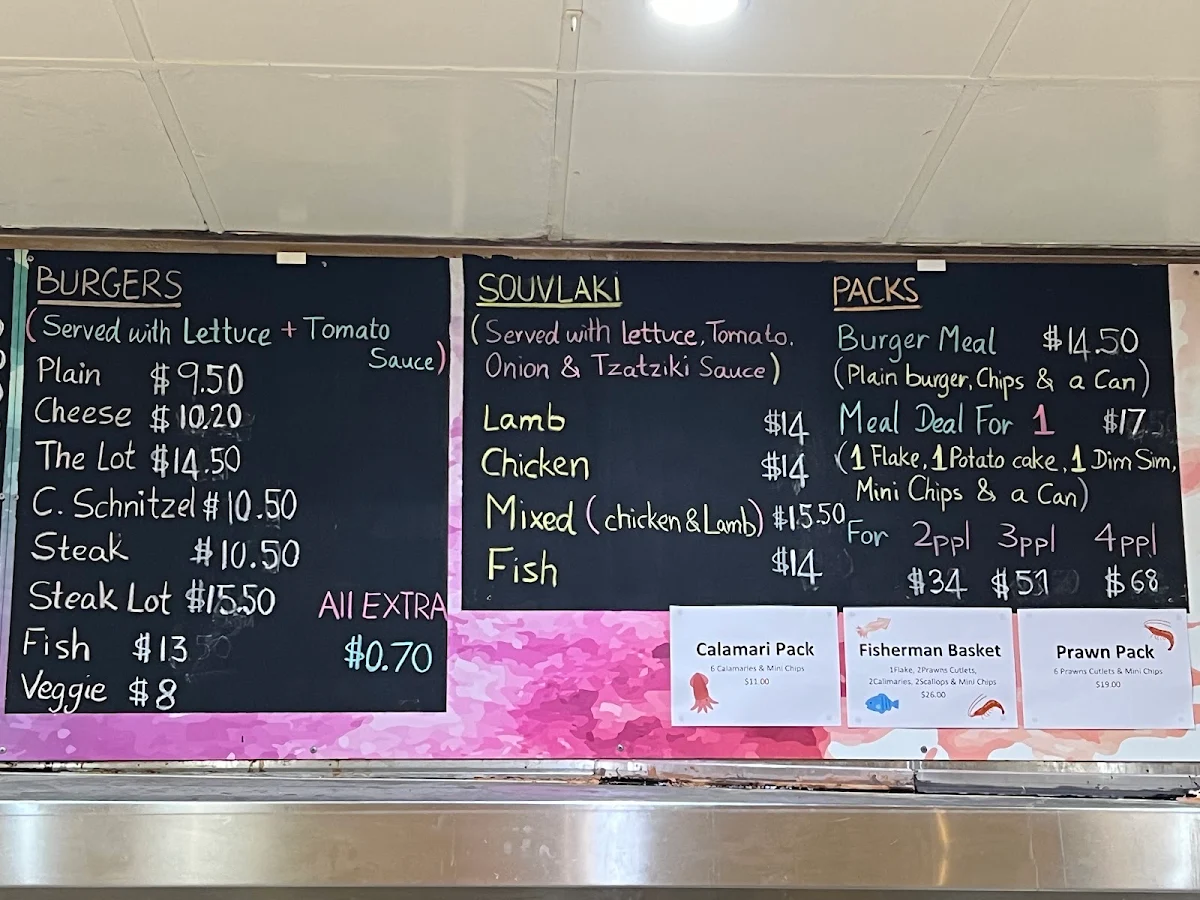 BURGERS
(Served with Lettuce + Tomato
Sauce)
Plain $9.50
Cheese $10.20
The Lot $14.50
C. Schnitzel $10.50
Steak $10.50
Steak Lot $15.50
Fish $13
Veggie $8
All EXTRA
$0.70
SOUVLAKI
(Served with lettuce, Tomato.
Onion & Tzatziki Sauce)
Lamb $14
Chicken $14
Mixed (chicken & Lamb) $15.50
Fish $14
PACKS
Burger Meal $14.50
(Plain burger, Chips & a Can)
Meal Deal For 1 $17
(1 Flake, 1 Potato cake, 1 Dim Sim,
Mini Chips & a Can)
For 2ppl 3ppl 4ppl
$34 $51 $68
Calamari Pack
6 Calamaries & Mini Chips
$11.00
Fisherman Basket
1Flake, 2Prawns Cutlets,
2Calimaries, 2Scallops & Mini Chips
$26.00
Prawn Pack
6 Prawns Cutlets & Mini Chips
$19.00